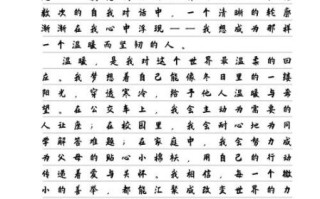 数次的自我对话中，一个清晰的轮廓
渐渐在我心中浮现——我想成为那样
一个温暖而坚韧的人。
温暖，是我对这个世界最温柔的回
应。我梦想着自己能像冬日里的一缕
阳光，穿透寒冷，给予他人温暖与希
望。在公交车上，我会主动为需要的
人让座；在校园里，我会耐心地为同
学解答难题；在家庭中，我会努力成
为父母的贴心小棉袄，用自己的行动
传递着爱与关怀。我相信，每一个微
小的善举，都能汇聚成改变世界的力